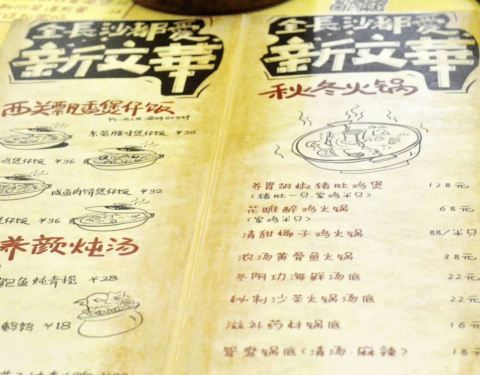 全長沙都愛
新文華
西关飘香煲仔饭
东菜腊味煲仔饭 ¥30
鸡煲仔饭 ¥36
咸鱼肉饼煲仔饭 ¥32
煲仔饭 ¥36
养颜炖汤
鲍鱼炖青榄 ¥28
鹧鸪 ¥18
全長沙都愛
新文華
秋冬火锅
养胃胡椒猪肚鸡煲 128元
(猪肚一只 家鸡半只)
花雕醉鸡火锅 68元
(家鸡半只)
清甜椰子鸡火锅 88/半只
浓汤黄骨鱼火锅 38元
冬阴功海鲜汤底 22元
秘制沙茶火锅汤底 22元
滋补药材锅底 16元
鸳鸯锅底(清汤·麻辣) 18元